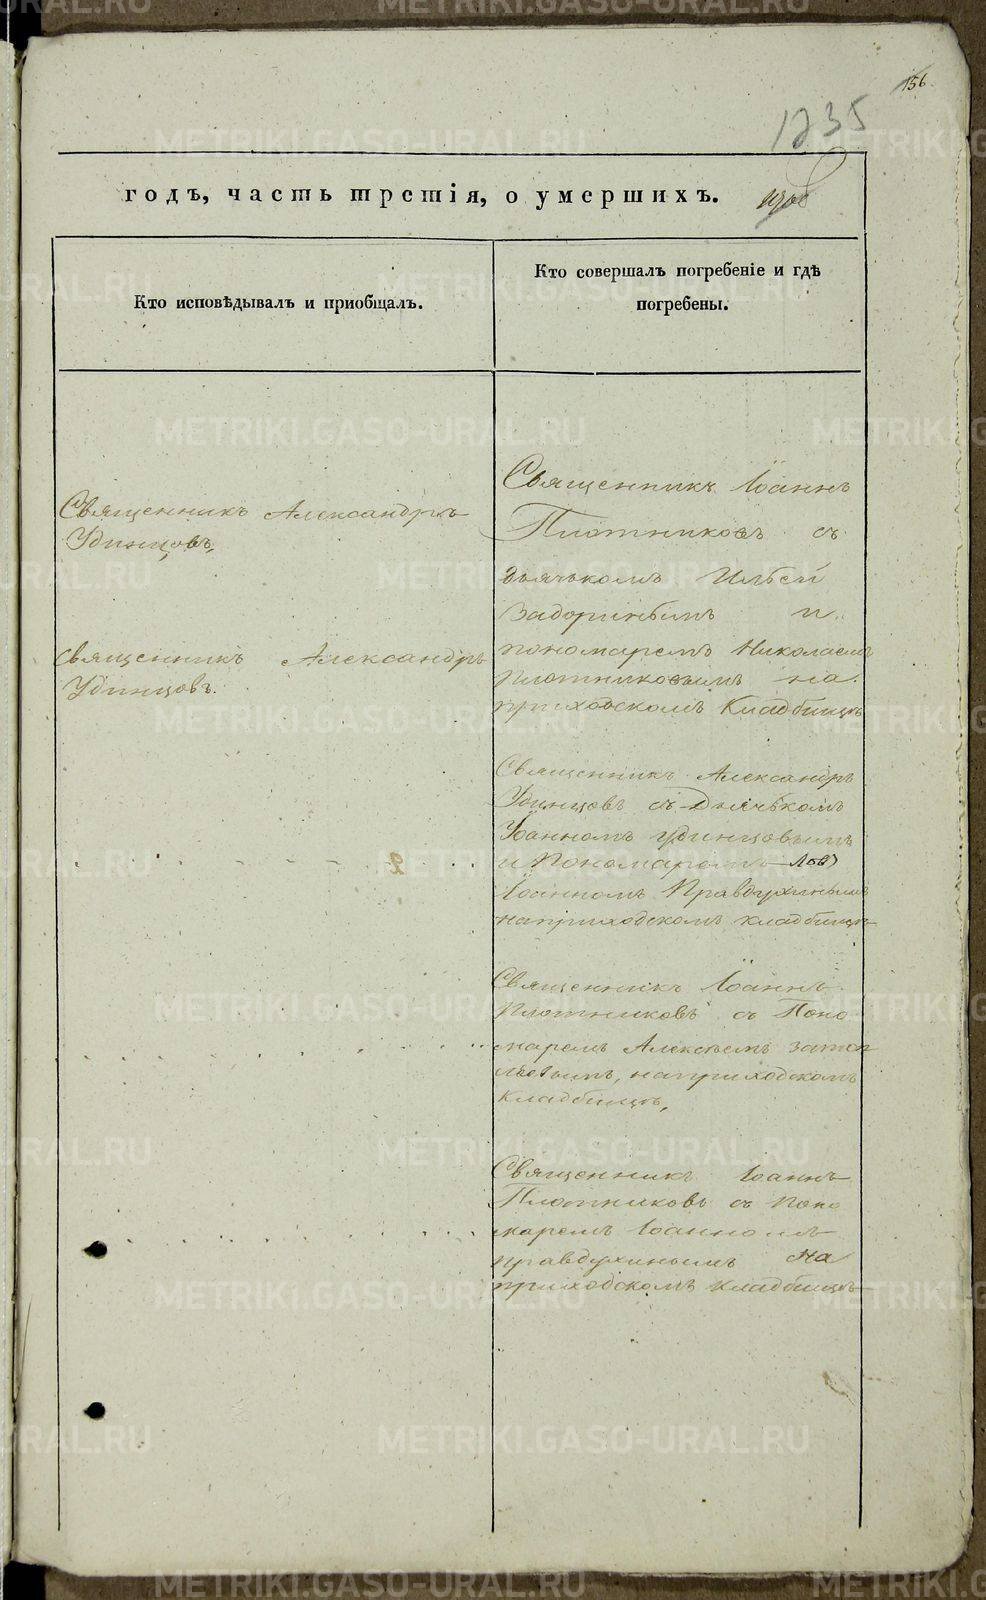 156
1235
годъ, часть третія, о умершихъ.
Кто исповѣдывалъ и приобщалъ.
Кто совершалъ погребеніе и гдѣ
погребены.
Священникъ Александръ
Удинцовъ,
Священникъ Александръ
Удинцовъ.
2
Священникъ Іоаннъ
Плотниковъ съ
дьячькомъ Ильей
Задоринымъ и
пономаремъ Николаемъ
Плотниковымъ на
приходскомъ Кладбищѣ
Священникъ Александръ
Удинцовъ съ Дьячькомъ
Іоанномъ Удинцовымъ
и Пономаремъ
Іоанномъ Правдухинымъ
на приходскомъ кладбищѣ
Священникъ Іоаннъ
Плотниковъ съ Поно
маремъ Алексѣемъ
на приходскомъ
Кладбищѣ,
Священникъ Іоаннъ
Плотниковъ съ Поно
маремъ Іоанномъ
Правдухинымъ На
приходскомъ кладбищѣ
METRIKI.GASO-URAL.RU